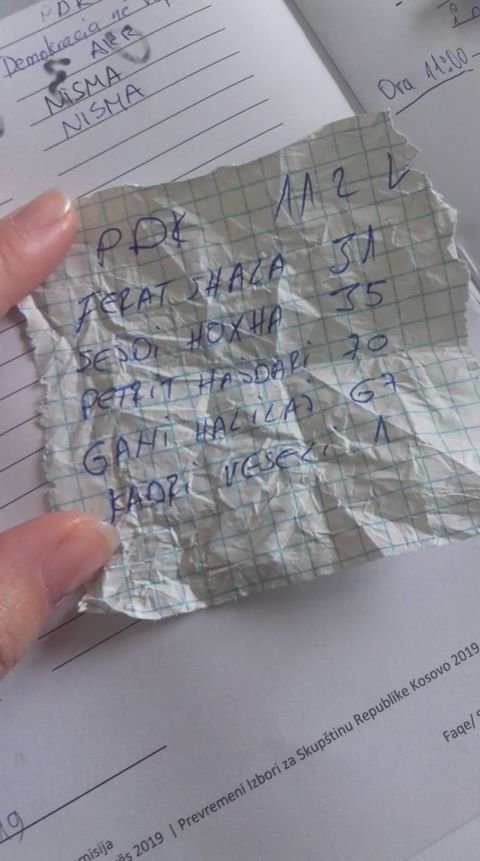 PDK
Demokracia në
AKR
NISMA
NISMA
Ora 11:00-
PDK 112 V
FERAT SHALA 31
SEJDI HOXHA 35
PETRIT HAJDARI 70
GANI HALILAJ 67
KADRI VESELI 1
misija
2019 | Prevremeni Izbori za Skupštinu Republike Kosovo 2019
Faqe/